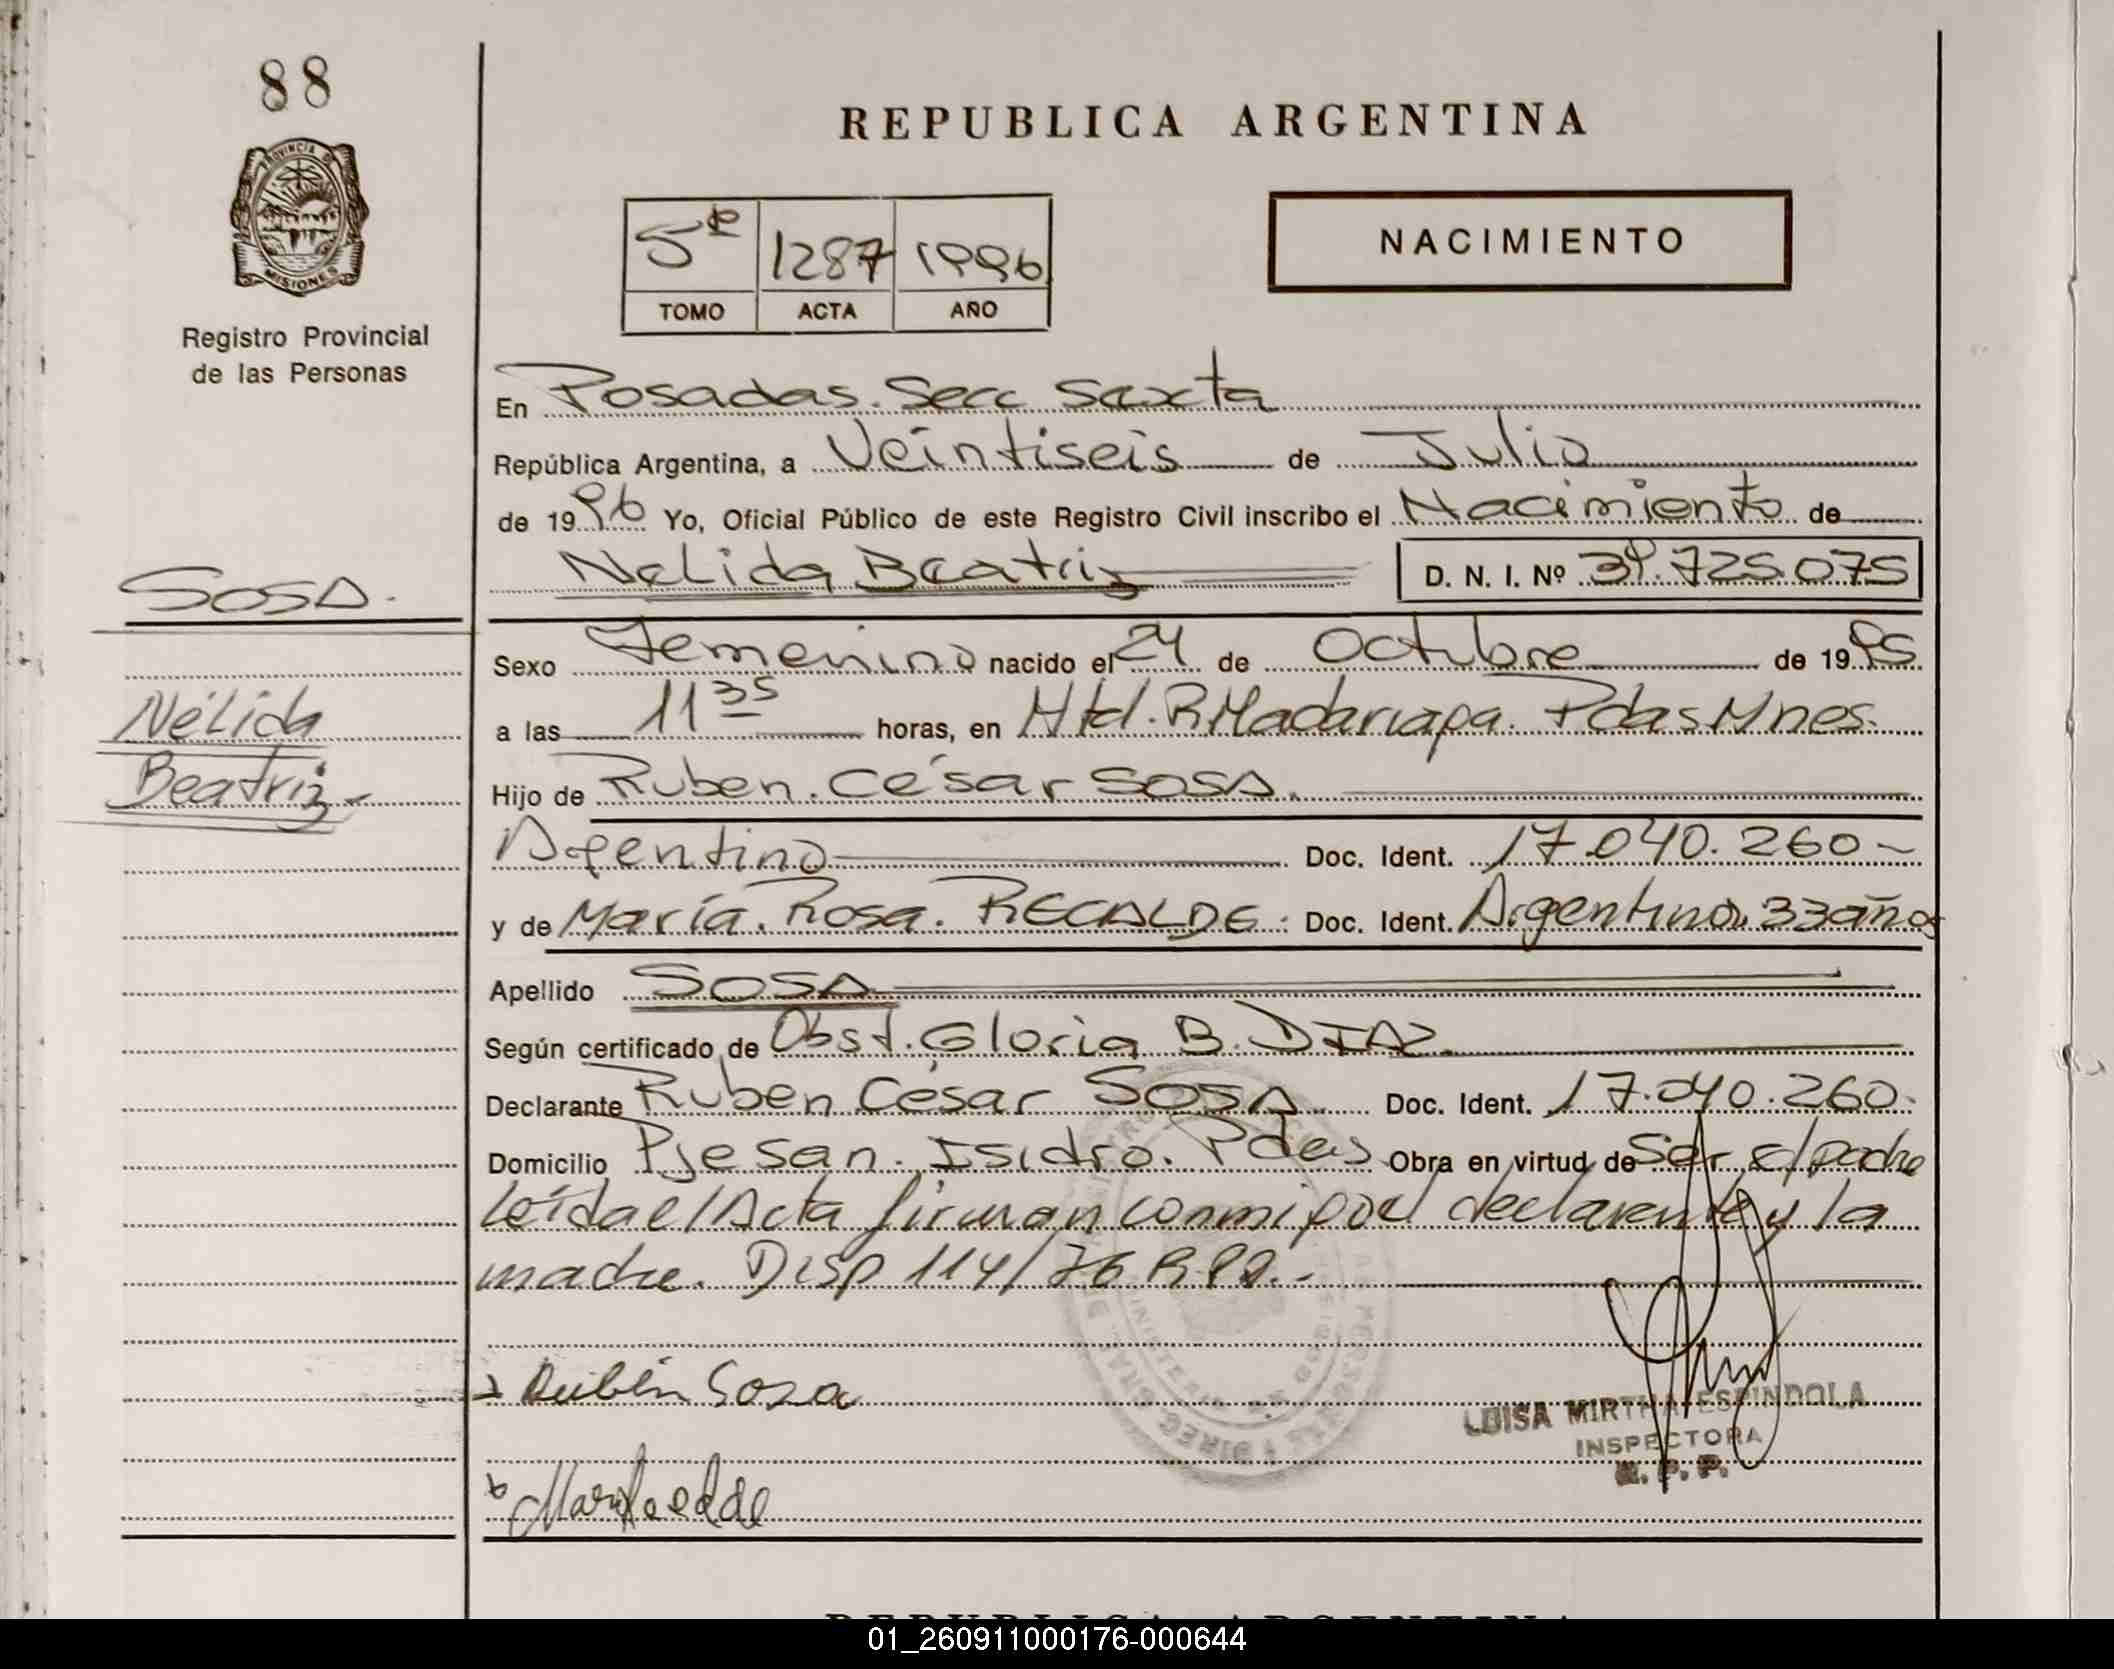 88
REPUBLICA ARGENTINA
PROVINCIA DE
MISIONES
Registro Provincial
de las Personas
5º 1287 1996
TOMO ACTA AÑO
NACIMIENTO
En Posadas. Secc Sexta
República Argentina, a Veintiseis de Julio
de 1996 Yo, Oficial Público de este Registro Civil inscribo el Nacimiento de
Nelida Beatriz D. N. I. Nº 39.725.075
SOSA.
Sexo Femenino nacido el 24 de Octubre de 1995
Nélida
Beatriz
a las 11 35 horas, en Mtd. R Madariaga. Pdas Mnes.
Hijo de Ruben. César SOSA.
Argentino Doc. Ident. 17.040.260
y de María. Rosa. RECALDE: Doc. Ident. Argentina 33 años
Apellido SOSA
Según certificado de Obst. Gloria B. DIAZ
Declarante Ruben César SOSA Doc. Ident. 17.040.260.
Domicilio Pje San. Isidro. Pdas Obra en virtud de Ser e/padre
Leída e/Acta firman conmigo el declarante y la
madre. Disp 114/76 R.P.P.
Rubén Sosa
LUISA MIRTHA ESPINDOLA
INSPECTORA
R. P. P.
REPUBLICA ARGENTINA
01_260911000176-000644